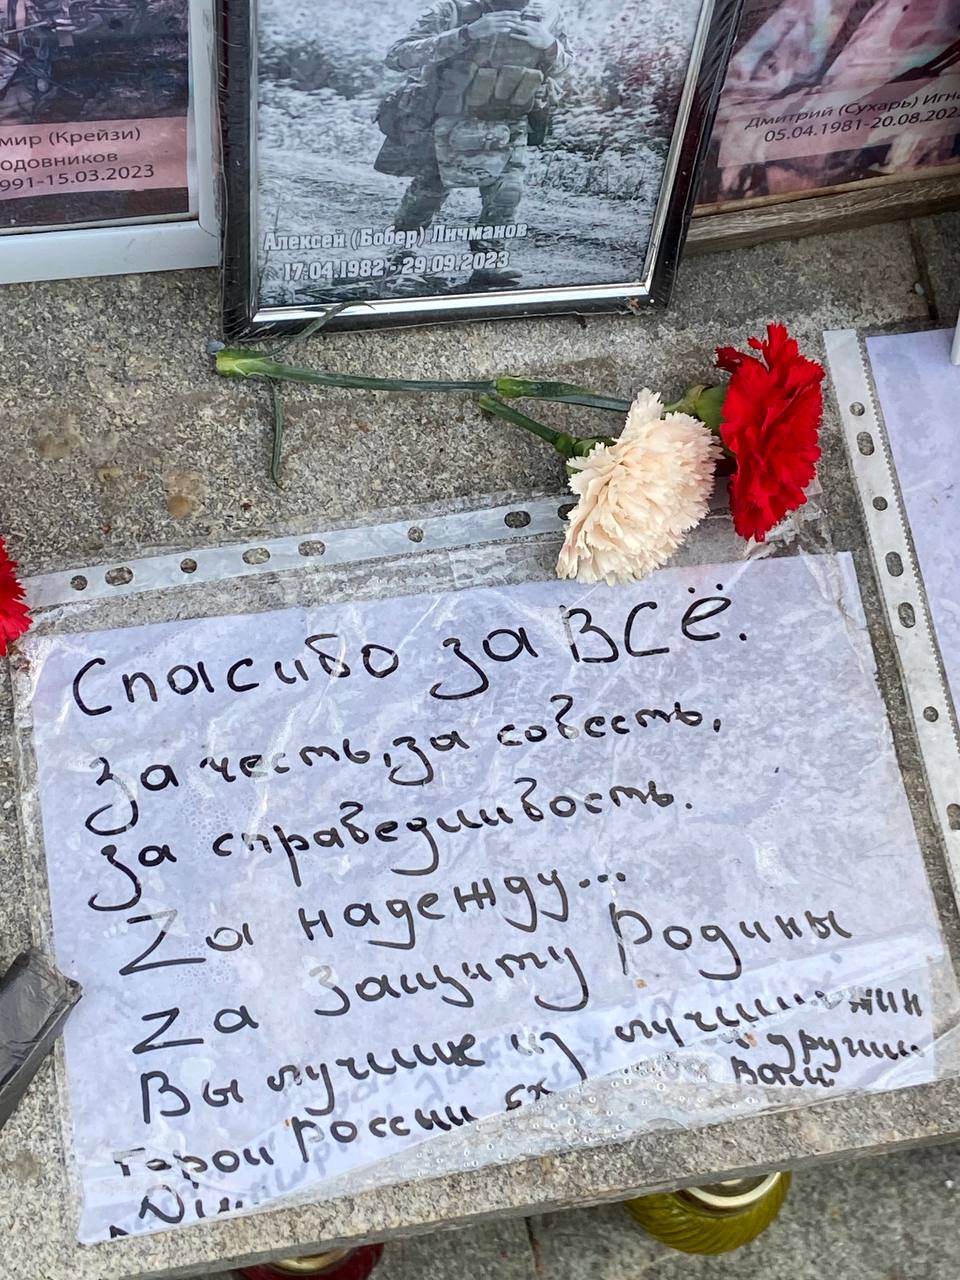 мир (Крейзи)
одовников
991-15.03.2023
Алексей (Бобер) Личманов
17.04.1982 - 29.09.2023
Дмитрий (Сухарь) Игна
05.04.1981-20.08.202
Спасибо за ВСЁ.
За честь, за совесть,
За справедливость.
Zа надежду...
Zа защиту Родины
Вы лучшие из
Герои России